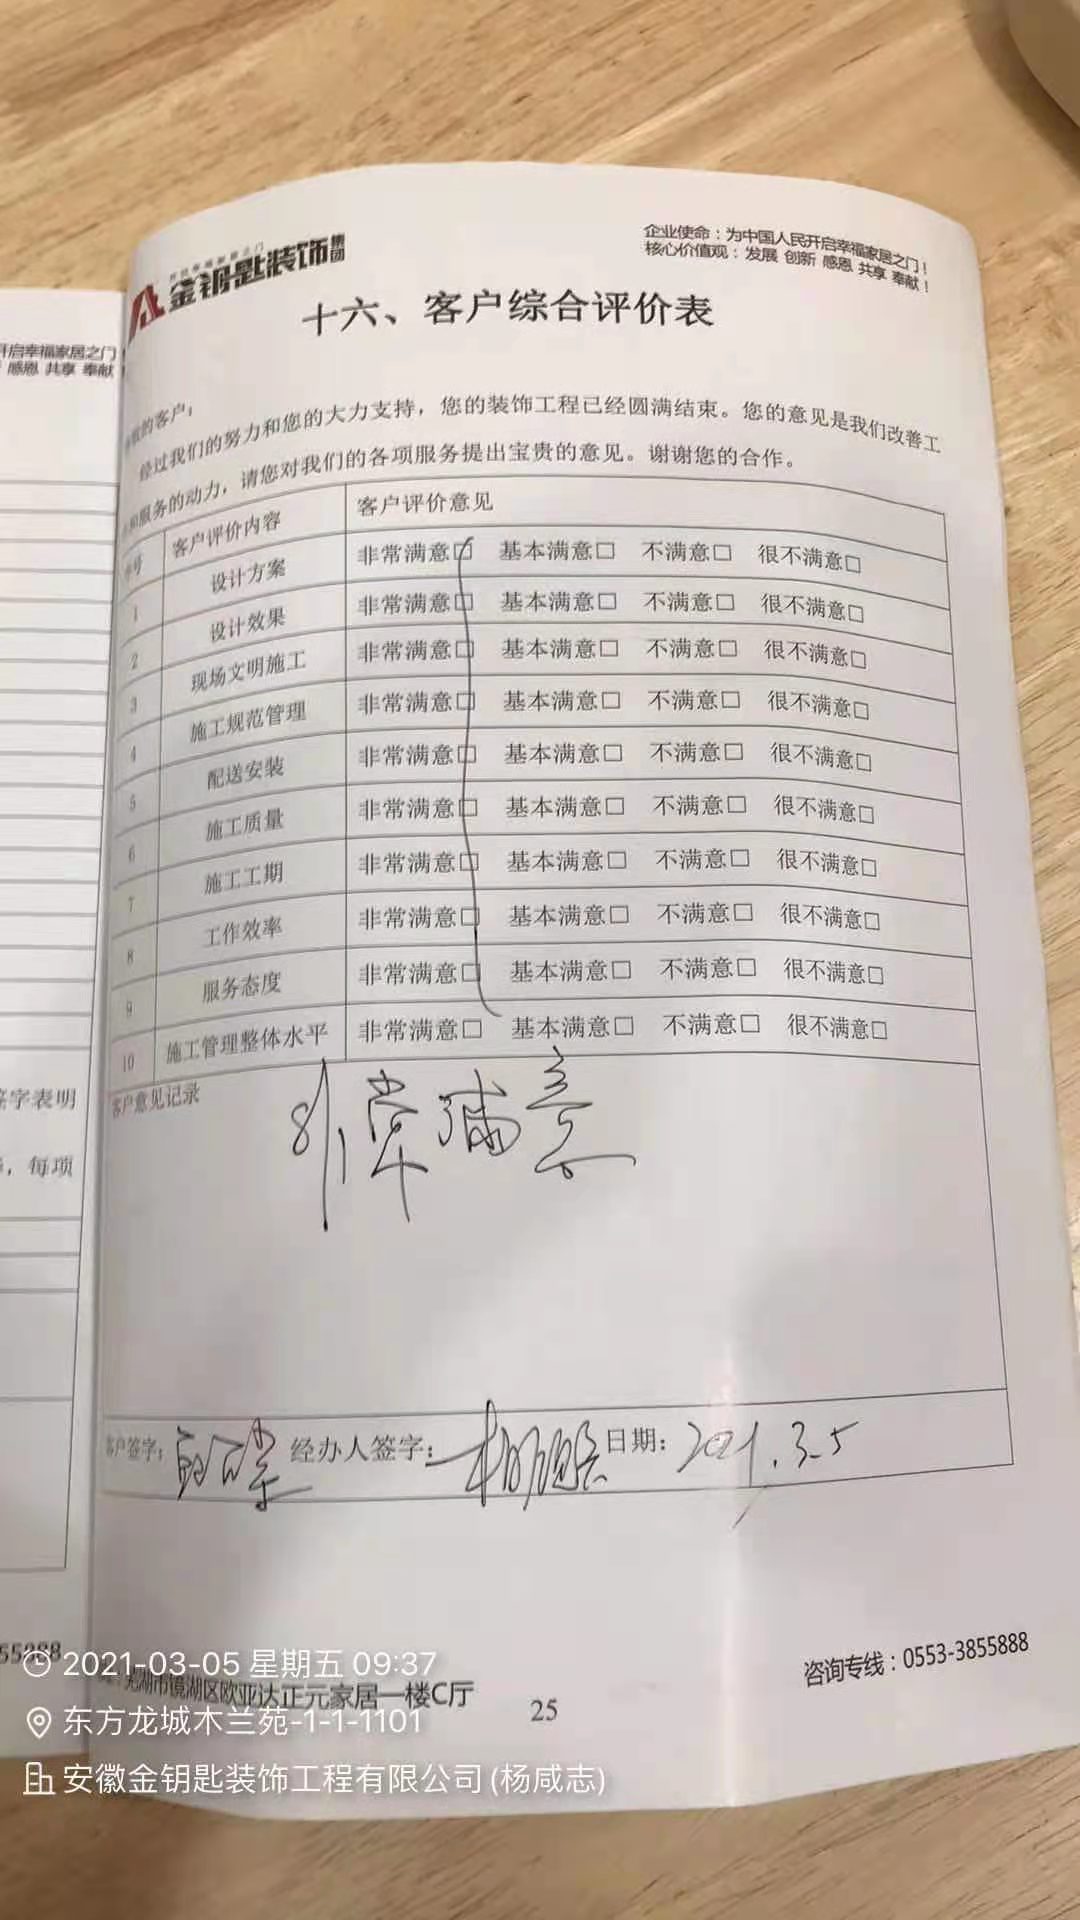 开启幸福家居之门
感恩 共享 奉献
金钥匙装饰集团
企业使命：为中国人民开启幸福家居之门！
核心价值观：发展 创新 感恩 共享 奉献！
十六、客户综合评价表
的客户：
经过我们的努力和您的大力支持，您的装饰工程已经圆满结束。您的意见是我们改善工
和服务的动力，请您对我们的各项服务提出宝贵的意见。谢谢您的合作。
号 客户评价内容 客户评价意见
1 设计方案 非常满意□ 基本满意□ 不满意□ 很不满意□
2 设计效果 非常满意□ 基本满意□ 不满意□ 很不满意□
3 现场文明施工 非常满意□ 基本满意□ 不满意□ 很不满意□
4 施工规范管理 非常满意□ 基本满意□ 不满意□ 很不满意□
5 配送安装 非常满意□ 基本满意□ 不满意□ 很不满意□
6 施工质量 非常满意□ 基本满意□ 不满意□ 很不满意□
7 施工工期 非常满意□ 基本满意□ 不满意□ 很不满意□
8 工作效率 非常满意□ 基本满意□ 不满意□ 很不满意□
9 服务态度 非常满意□ 基本满意□ 不满意□ 很不满意□
10 施工管理整体水平 非常满意□ 基本满意□ 不满意□ 很不满意□
客户意见记录
非常满意
签字表明
，每项
客户签字： 经办人签字： 日期：2021.3.5
55888
咨询专线：0553-3855888
芜湖市镜湖区欧亚达正元家居一楼C厅
25
2021-03-05 星期五 09:37
东方龙城木兰苑-1-1-1101
安徽金钥匙装饰工程有限公司(杨咸志)